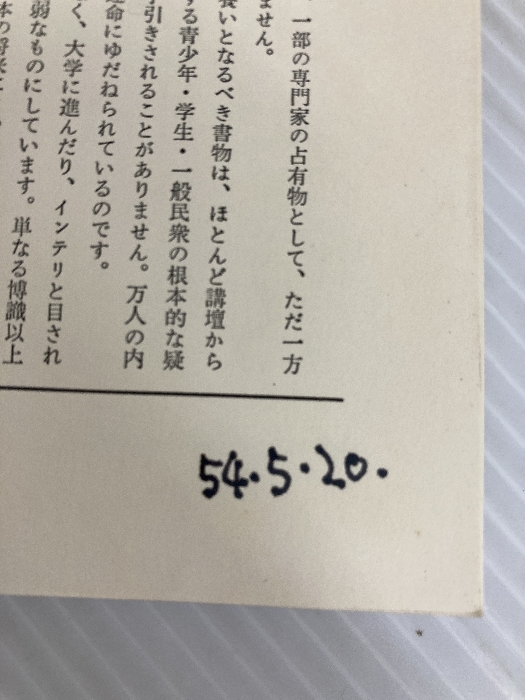 一部の専門家の占有物として、ただ一方
ません。
養いとなるべき書物は、ほとんど講壇から
する青少年・学生・一般民衆の根本的な疑
引きされることがありません。万人の内
運命にゆだねられているのです。
く、大学に進んだり、インテリと目され
弱なものにしています。単なる博識以上
54.5.20.